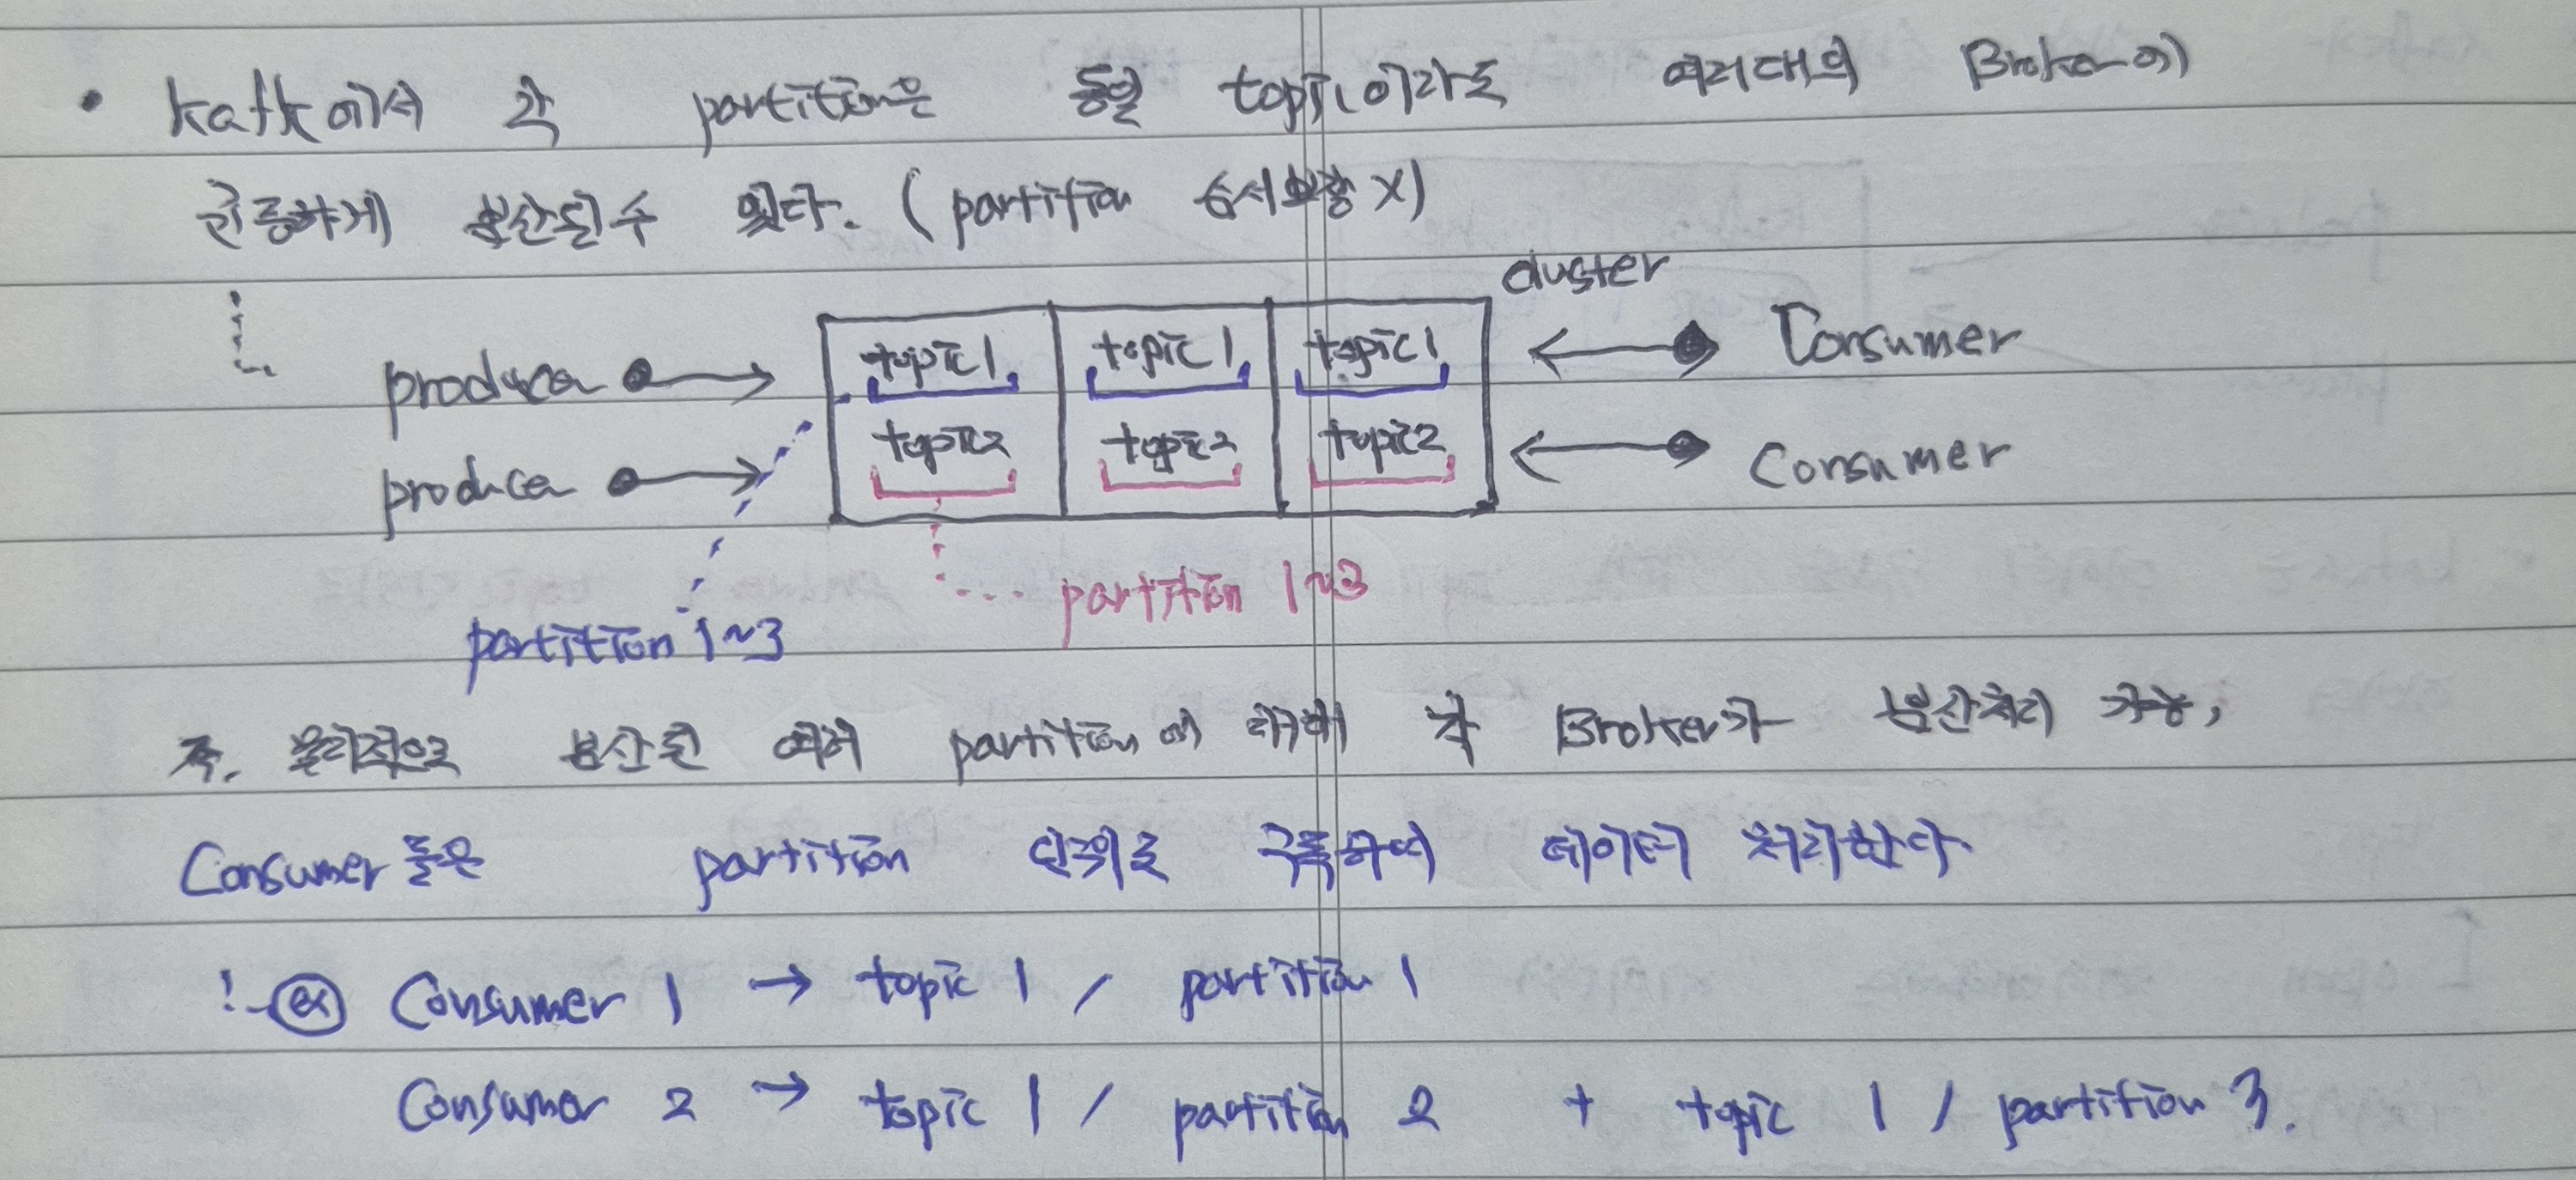 • kafk에서 각 partition은 동일 topic이라도 여러대의 Broker에
균등하게 분산될수 있다. (partition 순서보장 X)
cluster
producer → topic1 topic1 topic1 ← Consumer
producer → topic2 topic2 topic2 ← Consumer
partition 1~3
partition 1~3
즉, 물리적으로 분산된 여러 partition에 대해 각 Broker가 분산처리 가능,
Consumer들은 partition 단위로 구독하여 데이터 처리한다
ex Consumer 1 → topic 1 / partition 1
Consumer 2 → topic 1 / partition 2 + topic 1 / partition 3.